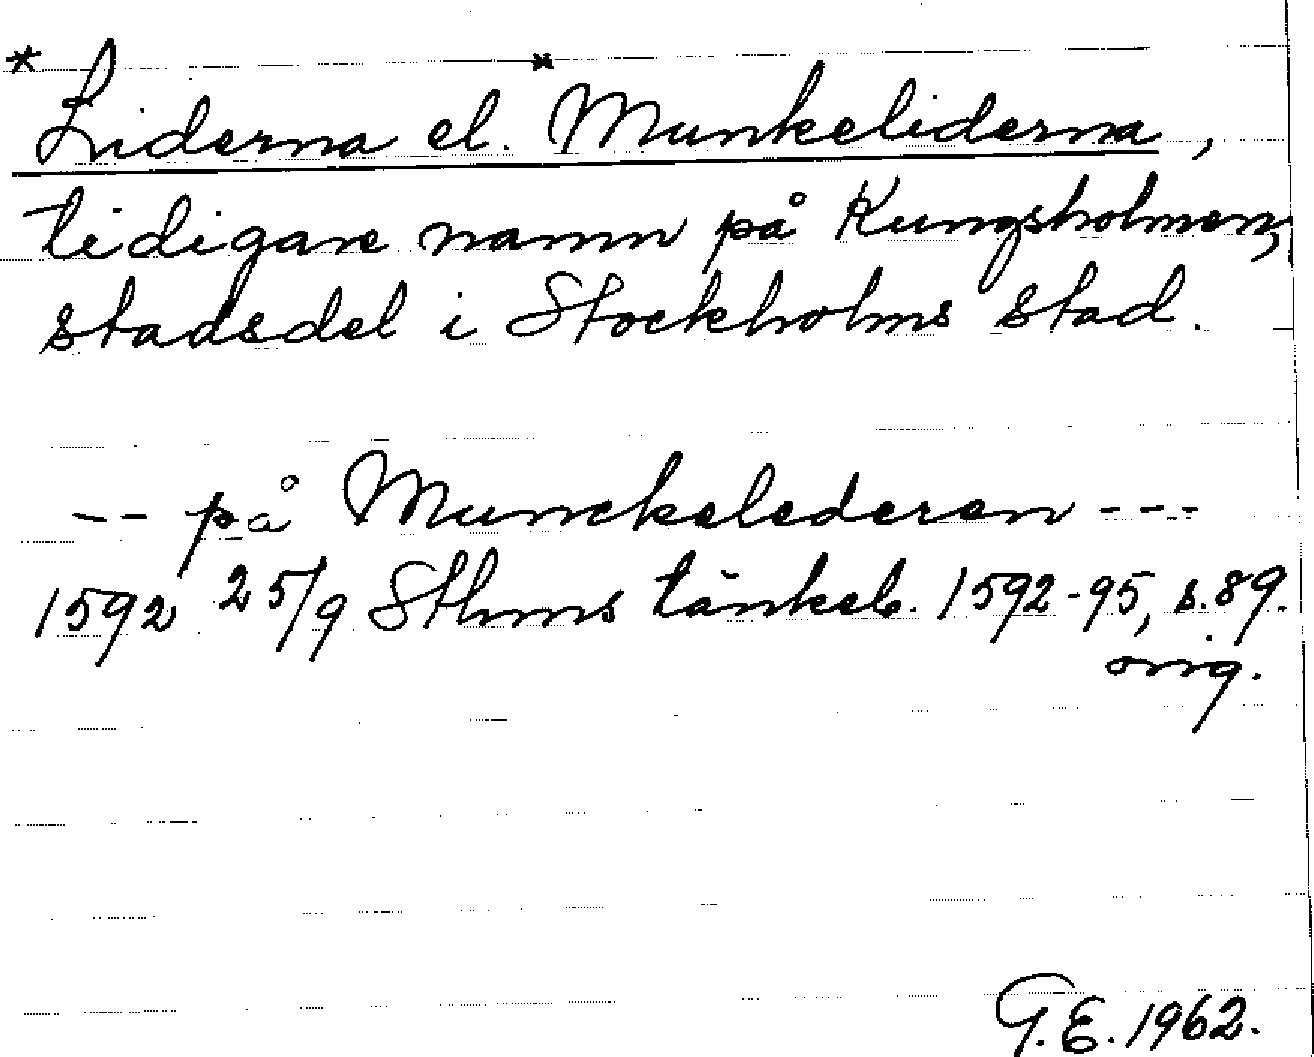 * Liderna el. * Munkeliderna,
tidigare namn på Kungsholmen,
stadsdel i Stockholms stad.
-- på Munckelederen ---
1592 25/9 Sthms tänkeb. 1592-95, s. 89.
orig.
G.E. 1962.